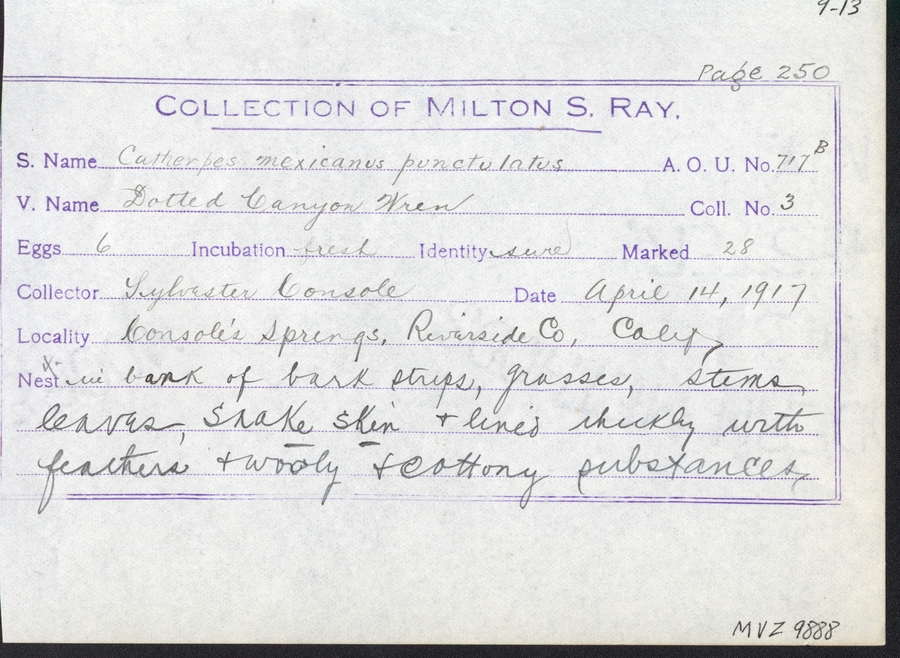 9-13
Page 250
COLLECTION OF MILTON S. RAY.
S. Name Catherpes mexicanus punctulatus A. O. U. No. 717B
V. Name Dotted Canyon Wren Coll. No. 3
Eggs 6 Incubation fresh Identity sure Marked 28
Collector Sylvester Console Date April 14, 1917
Locality Console's Springs, Riverside Co, Calif
Nest x in bank of bark strips, grasses, stems,
leaves, snake skin + lined thickly with
feathers + wooly + cottony substances,
MVZ 9888